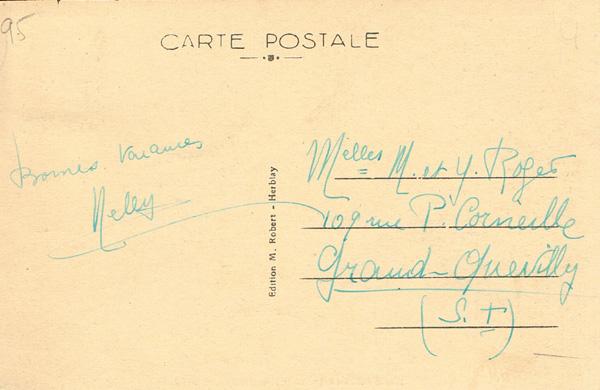 95
CARTE POSTALE
Bonnes vacances
Nelly
Edition M. Robert - Herblay
Melles M. et Y. Roger
109 rue P. Corneille
Grand-Quevilly
(S. I)